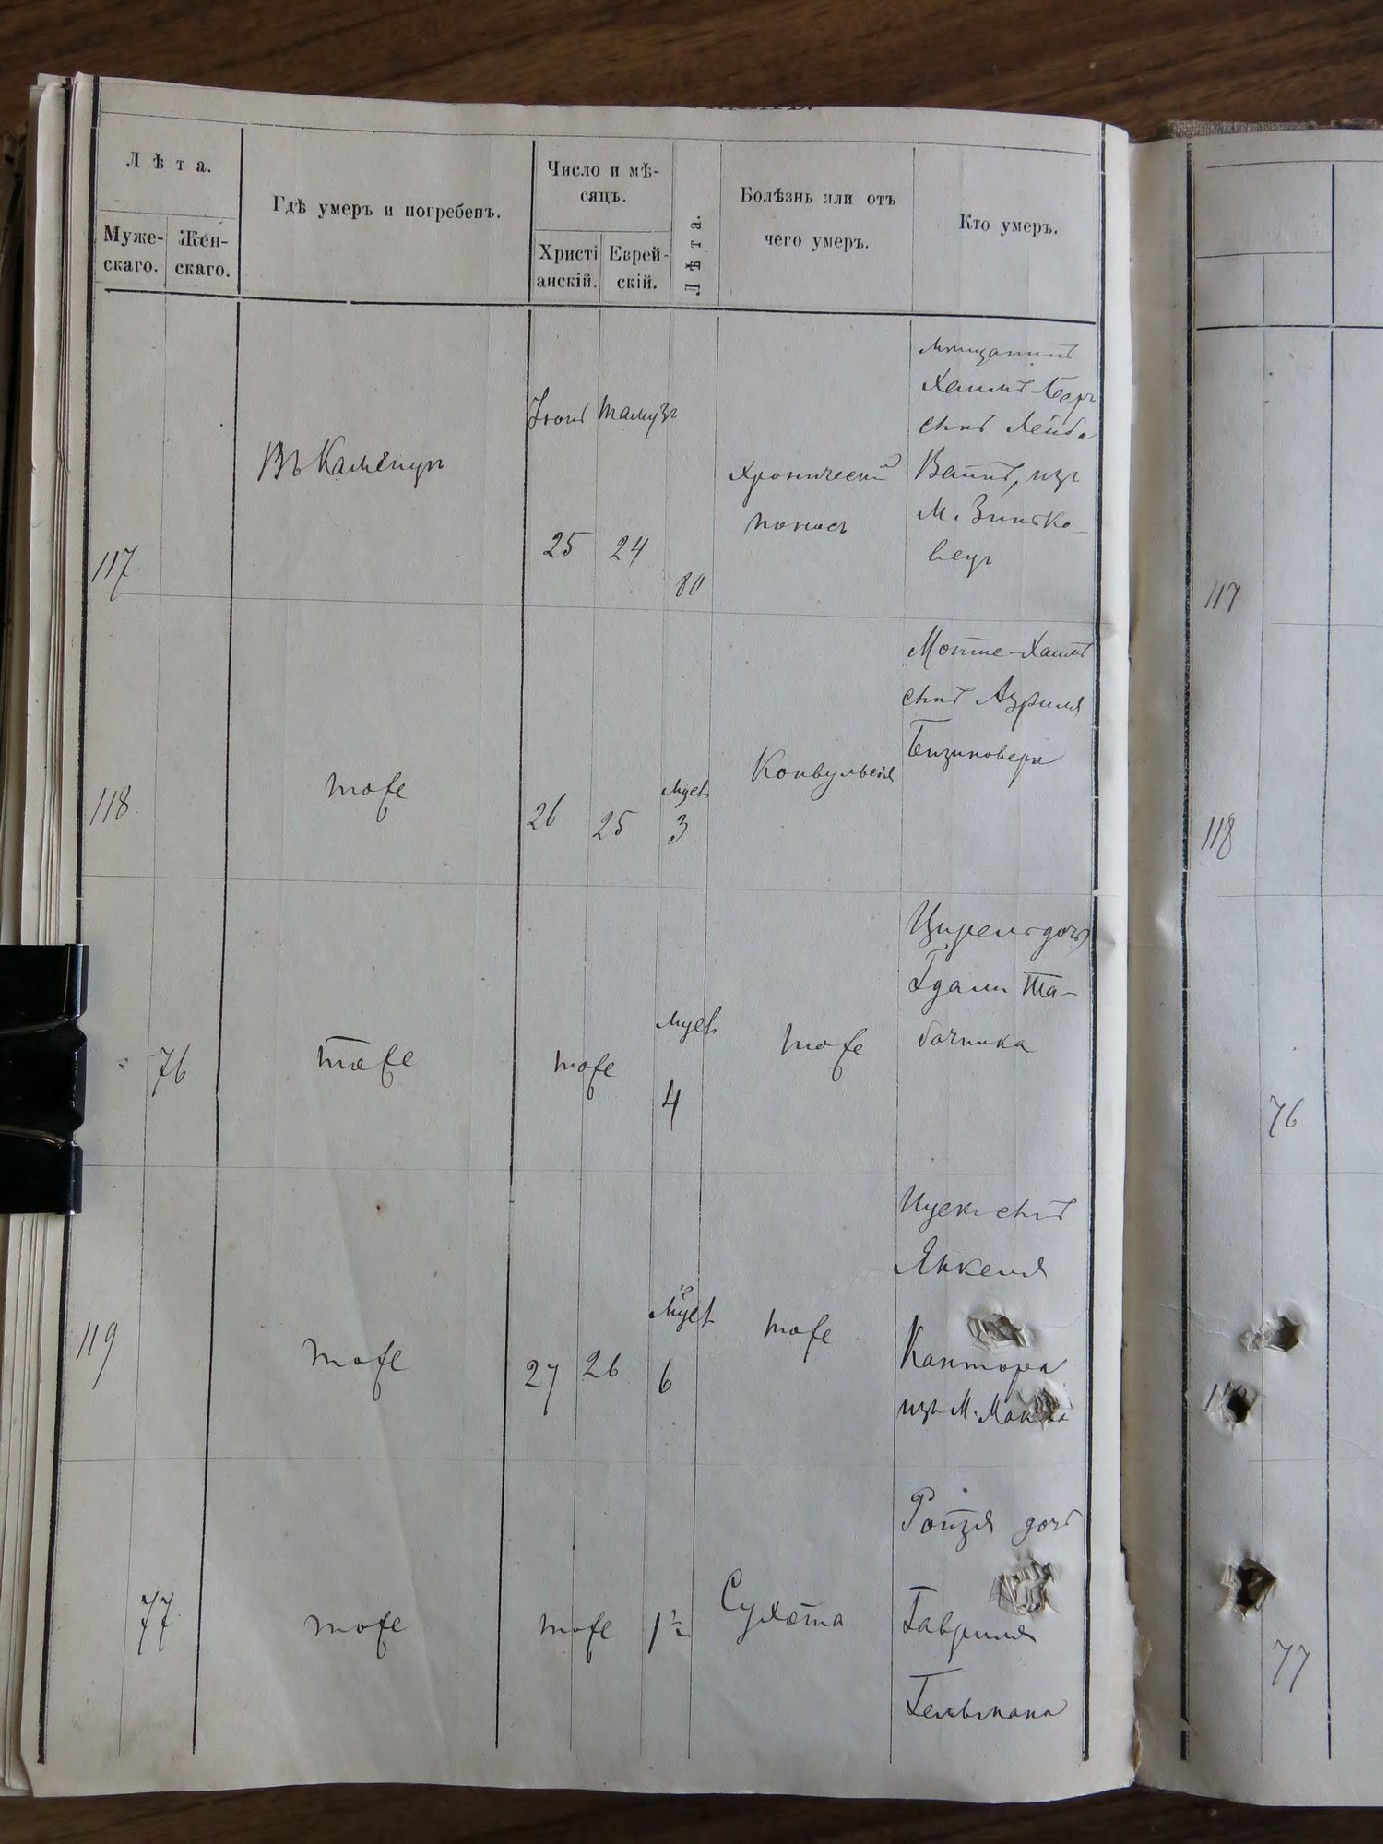 Лѣта.
Муже-
скаго.
Жен-
скаго.
Гдѣ умеръ и погребенъ.
Число и мѣ-
сяцъ.
Христі
анскій.
Еврей-
скій.
Лѣта.
Болѣзнь или отъ
чего умеръ.
Кто умеръ.
117
Въ Каменцѣ
Іюнь Тамузъ
25 24
80
Хронический
поносъ
мещанинъ
Хаимъ-Беръ
сынъ Лейба
Ваинъ, изъ
М. Зинько-
вецъ
118
тоже
26 25
Мцев.
3
Конвульсія
Мотте-Хаимъ
сынъ Азриля
76
тоже
тоже
Мцев.
4
тоже
Цирель дочь
Гдали Та-
бачника
119
тоже
27 26
Мцев.
6
тоже
Ицекъ сынъ
Янкеля
Кантора
изъ М.
77
тоже
тоже
1½
Сухота
Ройзя дочь
Гавриля
Гельмана
117
118
76
77